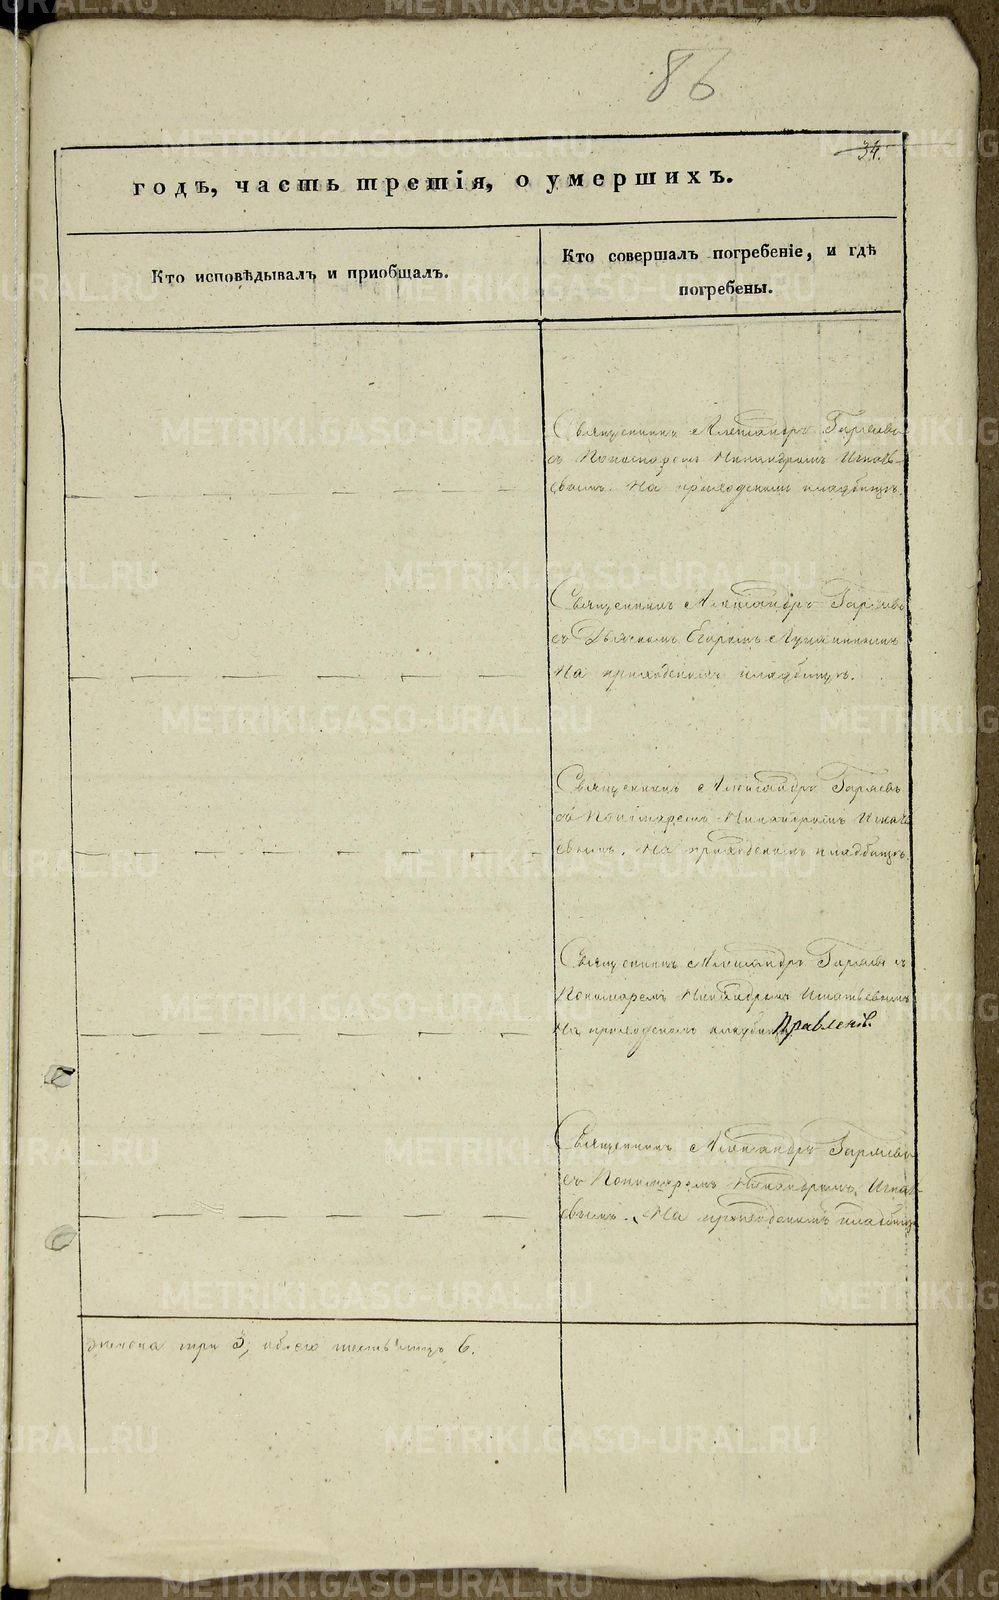 86
34.
годъ, часть третія, о умершихъ.
Кто исповѣдывалъ и пріобщалъ.
Кто совершалъ погребеніе, и гдѣ
погребены.
Священникъ Александръ Гаряевъ
съ Пономаремъ Никандромъ Игнать-
евымъ. На приходскомъ кладбищѣ.
Священникъ Александръ Гаряевъ
съ Дьячкомъ Егоромъ
На приходскомъ кладбищѣ.
Священникъ Александръ Гаряевъ
съ Пономаремъ Никандромъ Игнать
евымъ. На приходскомъ кладбищѣ.
Священникъ Александръ Гаряевъ съ
Пономаремъ Никандромъ Игнатьевымъ
На приходскомъ кладбищѣ
Священникъ Александръ Гаряевъ
съ Пономаремъ Никандромъ Игнать-
евымъ. На приходскомъ кладбищѣ
три 3, обоего шесть 6.
METRIKI.GASO-URAL.RU